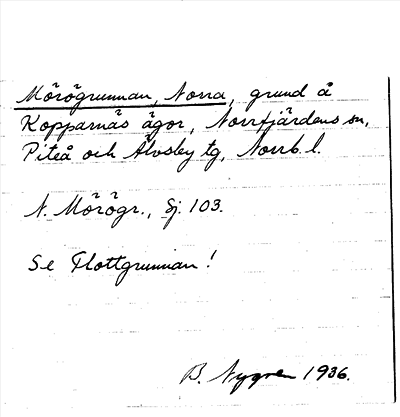 Mörögrunnan, Norra, grund å
Kopparnäs ägor, Norrfjärdens sn,
Piteå och Älvsby tg, Norrb. l.
N. Mörögr., Sj. 103.
Se Flottgrunnan!
B. Nygren 1936.